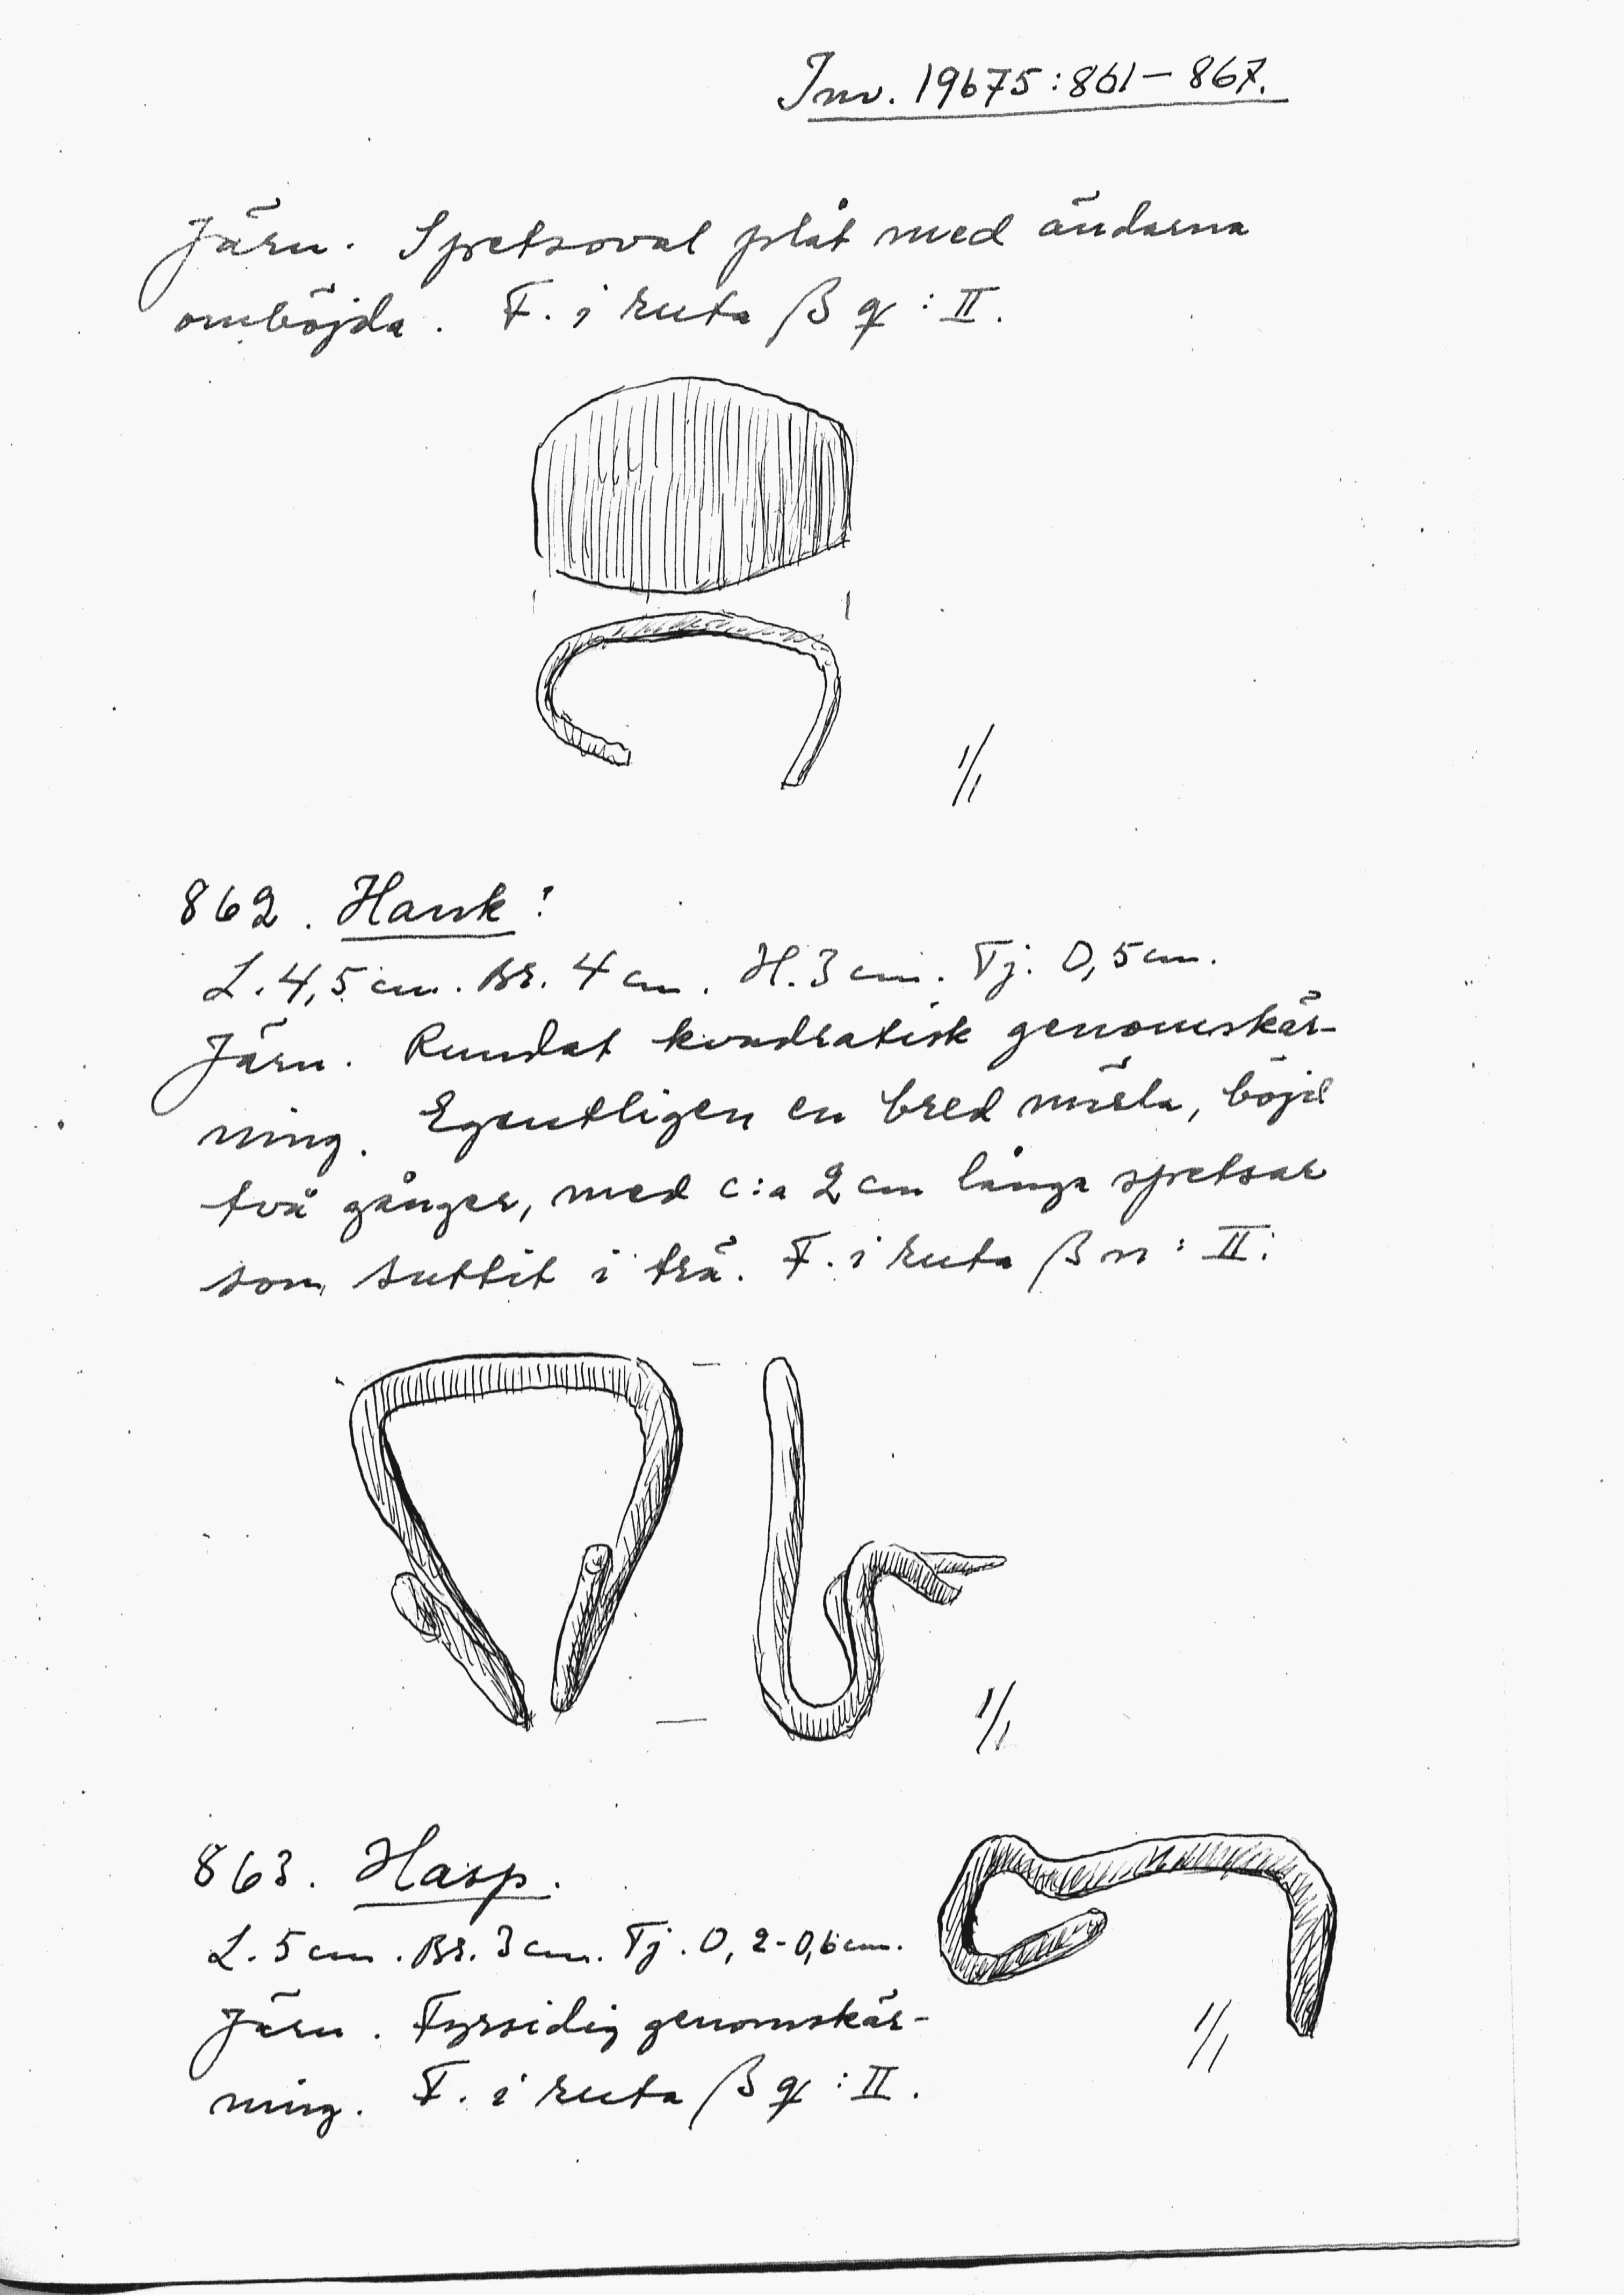 Inv. 19675:861–867.
Järn. Spetsoval plåt med ändarna
omböjda. F. i ruta β q : II.
1/1
862. Hank?
L. 4,5 cm. Br. 4 cm. H. 3 cm. Tj. 0,5 cm.
Järn. Rundat kvadratisk genomskär-
ning. Egentligen en bred märla, böjd
två gånger, med c:a 2 cm långa spetsar
som suttit i trä. F. i ruta β n : II.
1/1
863. Hasp.
L. 5 cm. Br. 3 cm. Tj. 0,2-0,6 cm.
Järn. Fyrsidig genomskär-
ning. F. i ruta β q : II.
1/1